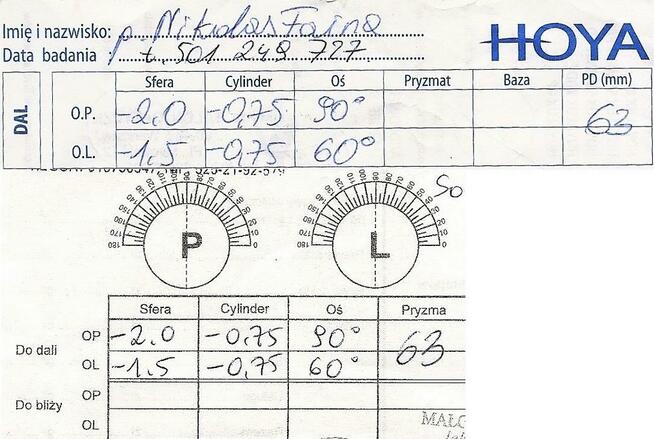 Imię i nazwisko: p. Nikolas Faina
HOYA
Data badania t. 501 249 727
Sfera Cylinder Oś Pryzmat Baza PD (mm)
DAL
O.P. -2.0 -0,75 90° 63
O.L. -1.5 -0,75 60°
180 170 160 150 140 130 120 110 100 90 80 70 60 50 40 30 20 10 0
P
180 170 160 150 140 130 120 110 100 90 80 70 60 50 40 30 20 10 0
L
So
Sfera Cylinder Oś Pryzma
Do dali OP -2.0 -0,75 90° 63
OL -1.5 -0,75 60°
Do bliży OP
OL